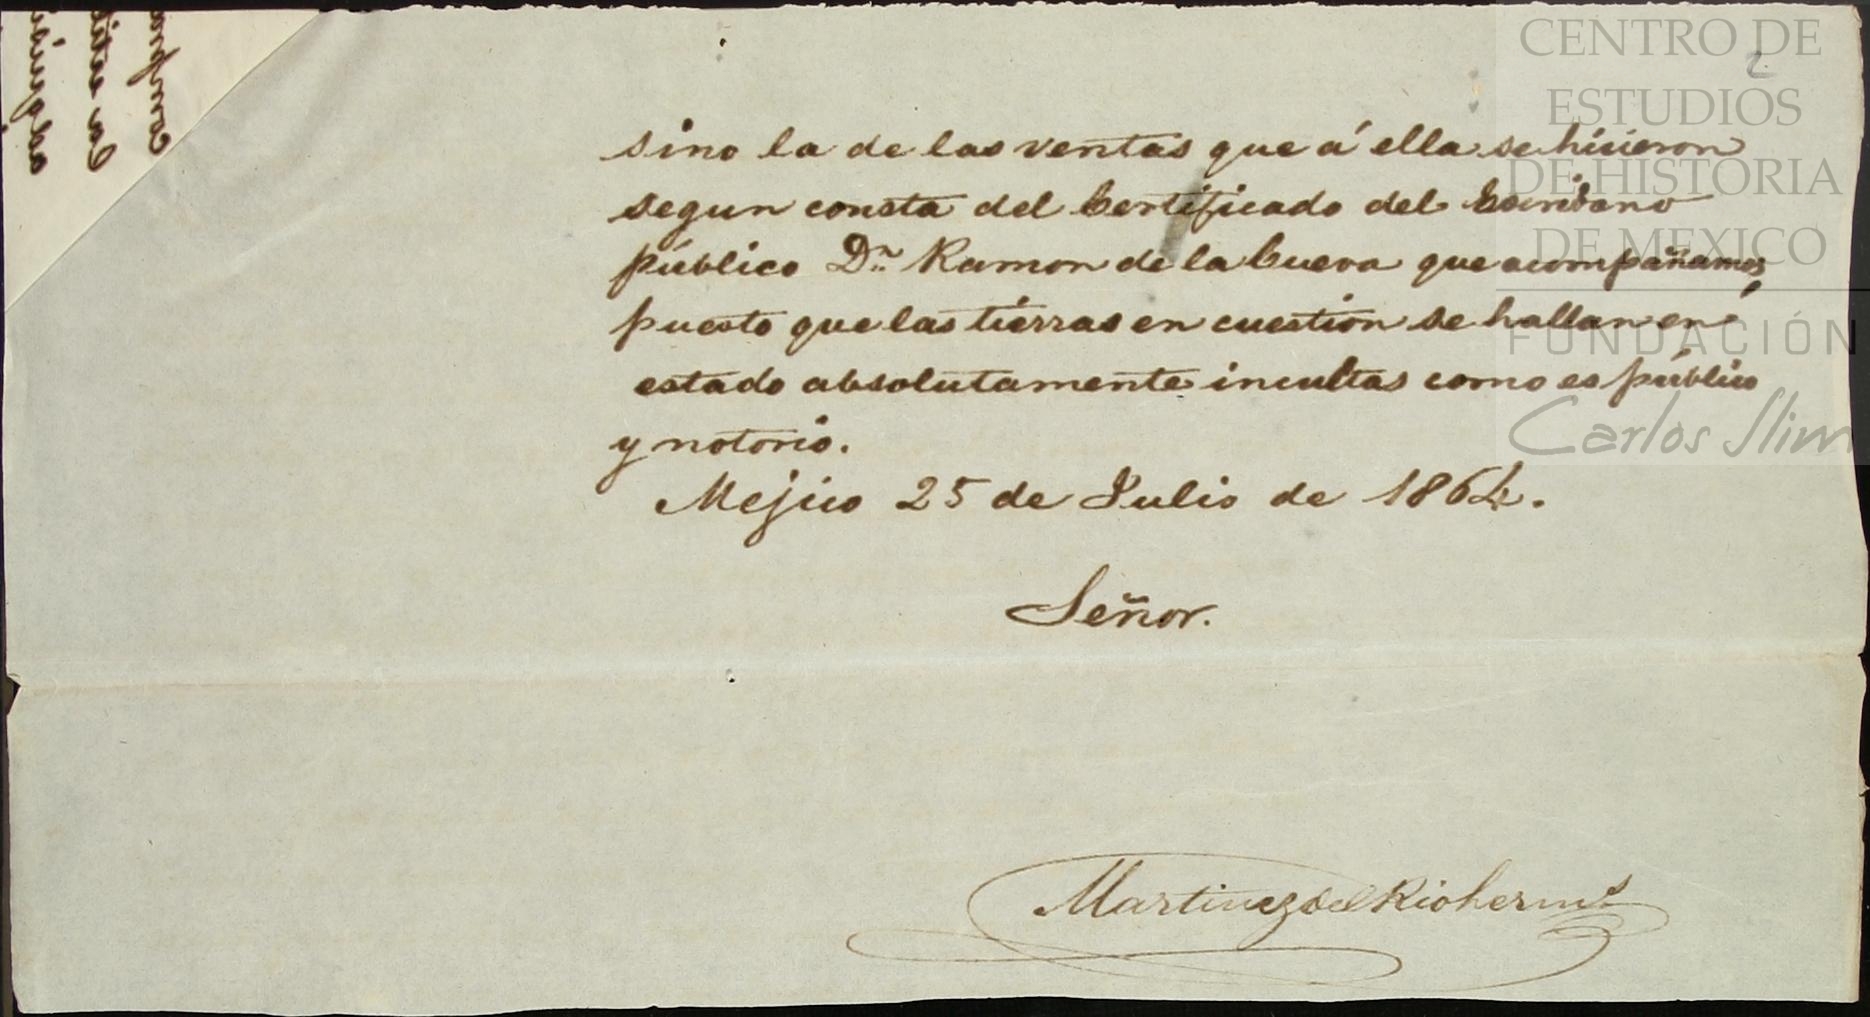 2.
sino la de las ventas que á ella se hicieron
segun consta del Certificado del Escribano
público Dn. Ramon de la Cueva que acompañamos,
puesto que las tierras en cuestion se hallan en
estado absolutamente incultas como es público
y notorio.
Mejico 25 de Julio de 1864.
Señor.
Martinez del Rio herms
CENTRO DE
ESTUDIOS
DE HISTORIA
DE MEXICO
FUNDACIÓN
Carlos Slim